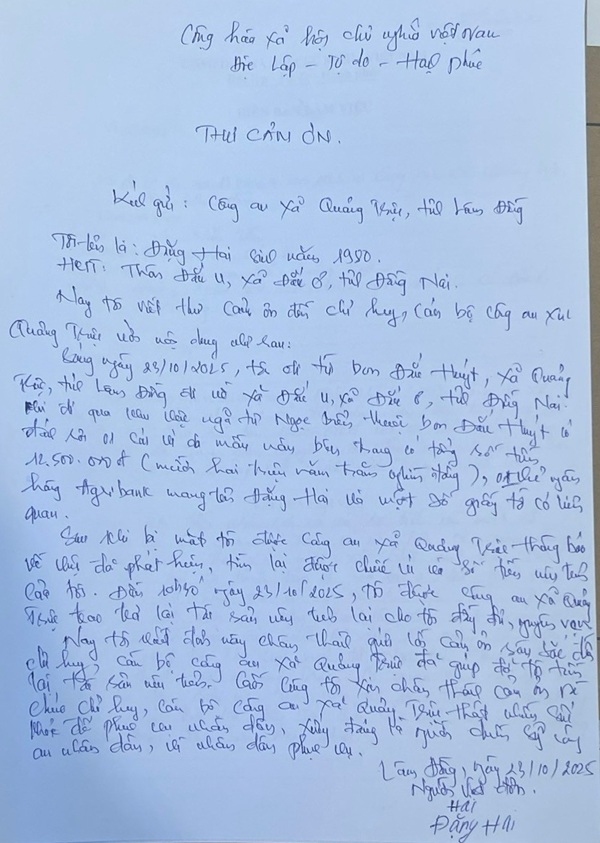 Cộng hòa xã hội chủ nghĩa việt nam
Độc lập - Tự do - Hạnh phúc
THƯ CẢM ƠN.
Kính gửi: Công an xã Quảng Trực, tỉnh Lâm Đồng
Tôi tên là: Đặng Hai sinh năm 1980.
HKTT: Thôn Đắk U, xã Đắk Ơ, tỉnh Đồng Nai.
Nay tôi viết thư cảm ơn đến chỉ huy, cán bộ công an xã
Quảng Trực với nội dung như sau:
Sáng ngày 23/10/2025, tôi đi từ bon Đắk Huýt, xã Quảng
Trực, tỉnh Lâm Đồng đi về xã Đắk U, xã Đắk Ơ, tỉnh Đồng Nai.
Khi đi qua khu vực ngã tư Ngọc thuộc bon Đắk Huýt có
đánh rơi 01 cái ví da màu nâu bên trong có tổng số tiền
12.500.000đ (mười hai triệu năm trăm nghìn đồng), 01 thẻ ngân
hàng Agribank mang tên Đặng Hai và một số giấy tờ có liên
quan.
Sau khi bị mất tôi được công an xã Quảng Trực thông báo
về việc đã phát hiện, tìm lại được chiếc ví và số tiền nêu trên
của tôi. Đến 10h30 ngày 23/10/2025, tôi được công an xã Quảng
Trực trao trả lại tài sản nêu trên lại cho tôi đầy đủ, nguyên vẹn
Nay tôi viết đơn này chân thành gửi lời cảm ơn sâu sắc đến
chỉ huy, cán bộ công an xã Quảng Trực đã giúp đỡ tôi tìm
lại tài sản nêu trên. Cuối cùng tôi xin chân thành cảm ơn và
chúc chỉ huy, cán bộ công an xã Quảng Trực thật nhiều sức
khỏe để phục vụ nhân dân, xứng đáng là người chiến sỹ công
an nhân dân, vì nhân dân phục vụ.
Lâm Đồng, ngày 23/10/2025
Người viết đơn.
Hai
Đặng Hai